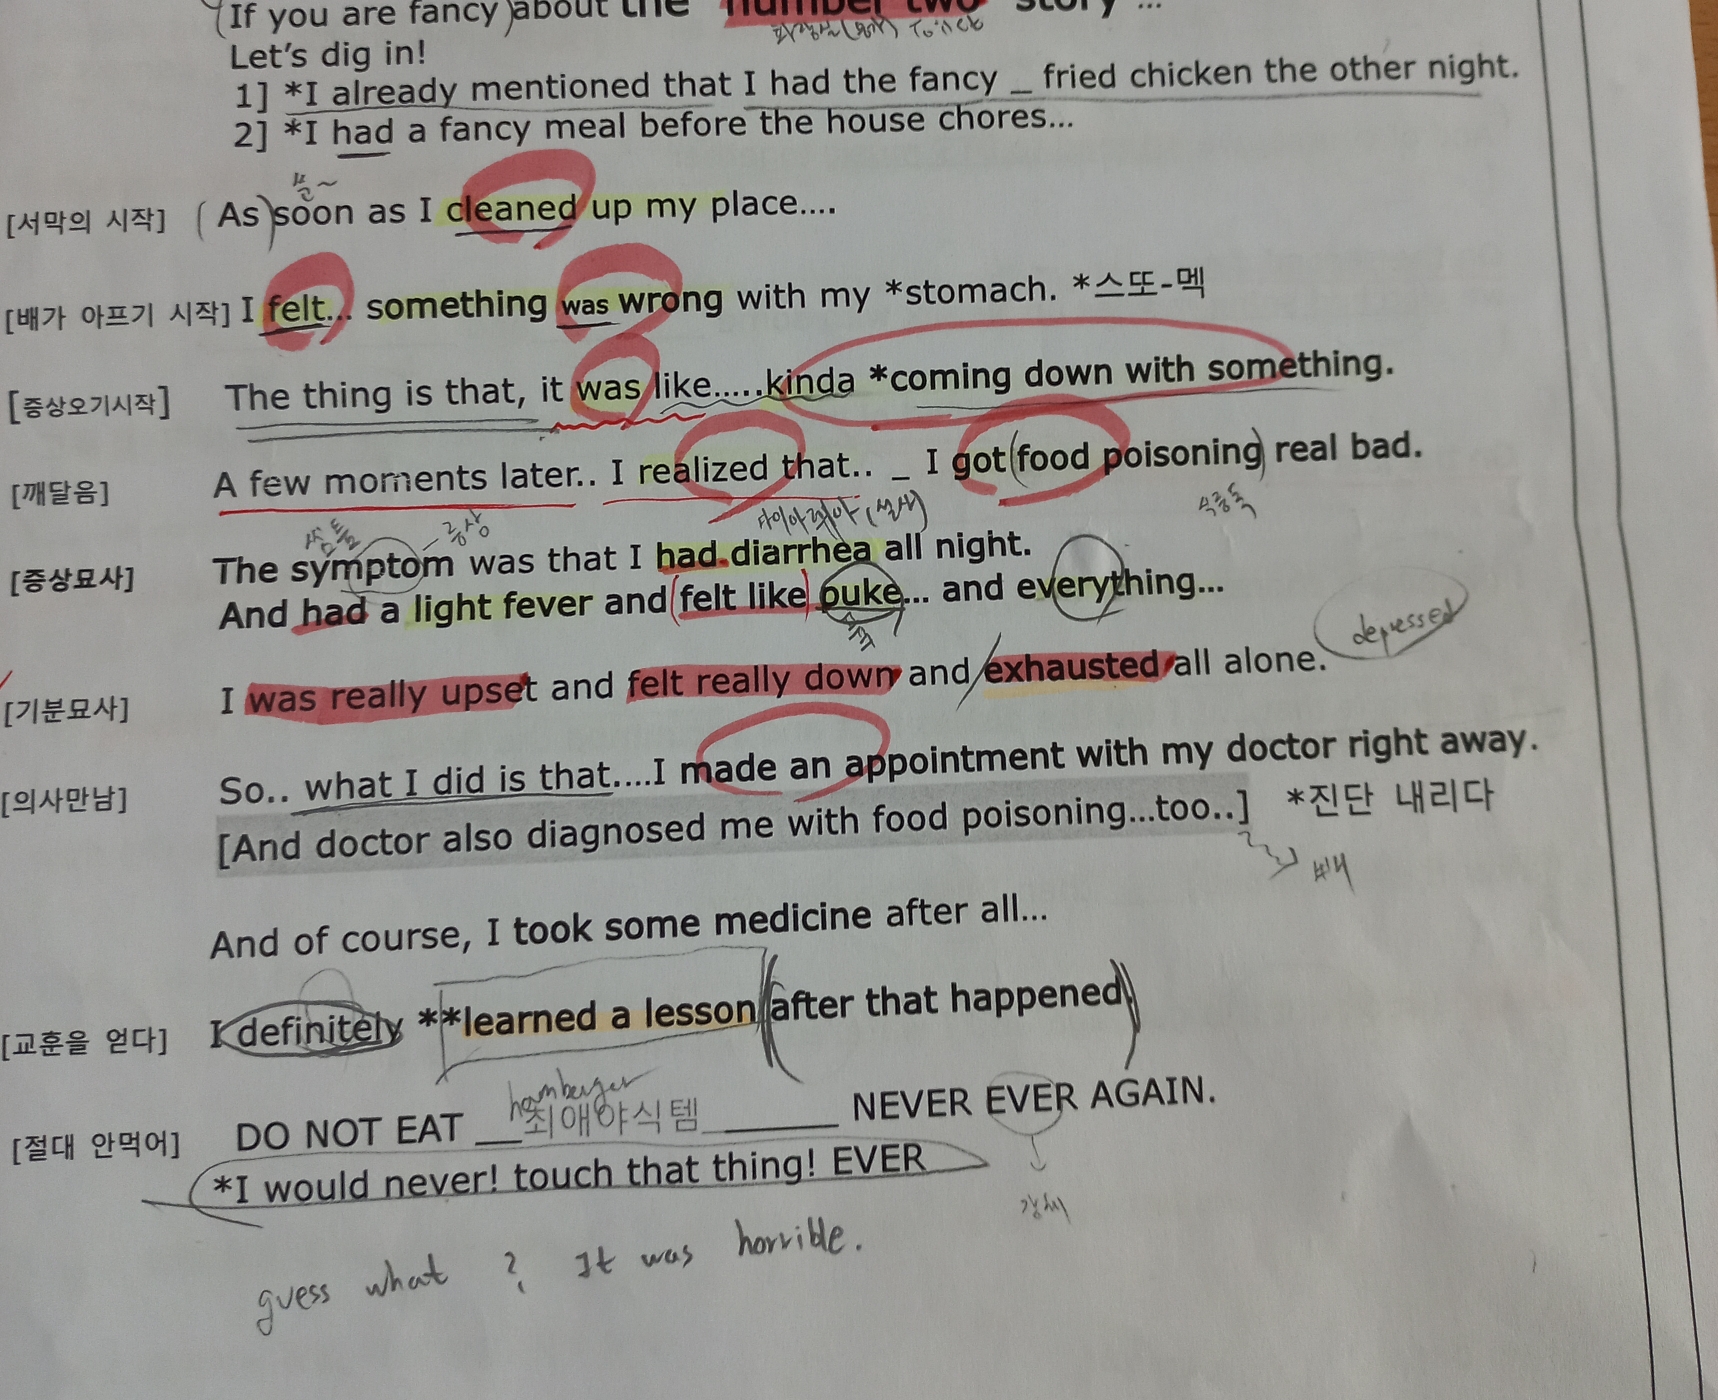 (If you are fancy) about the number two story ...
Let's dig in!
1] *I already mentioned that I had the fancy _ fried chicken the other night.
2] *I had a fancy meal before the house chores...
쑨~
[서막의 시작] (As) soon as I cleaned up my place....
[배가 아프기 시작] I felt... something was wrong with my *stomach. *스또-멕
[증상오기시작] The thing is that, it was like.....kinda *coming down with something.
[깨달음] A few moments later.. I realized that.. _ I got (food poisoning) real bad.
심듬 - 증상 다이아뤼아 (설사) 식중독
[증상묘사] The symptom was that I had diarrhea all night.
And had a light fever and (felt like) puke... and everything...
depressed
[기분묘사] I was really upset and felt really down and / exhausted all alone.
[의사만남] So.. what I did is that....I made an appointment with my doctor right away.
[And doctor also diagnosed me with food poisoning...too..] *진단 내리다
빼
And of course, I took some medicine after all...
[교훈을 얻다] I definitely **learned a lesson (after that happened)
hamberger
[절대 안먹어] DO NOT EAT __최애야식템______ NEVER EVER AGAIN.
*I would never! touch that thing! EVER
강세
guess what ? It was horrible.